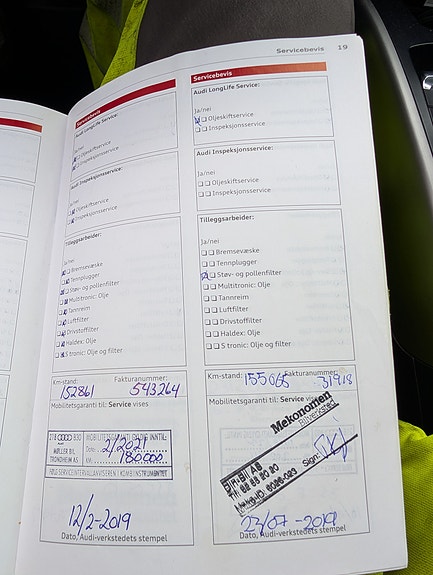 Servicebevis 19
Servicebevis
Audi LongLife Service:
Ja/nei
Oljeskiftservice
Inspeksjonsservice
Audi Inspeksjonsservice:
Ja/nei
Oljeskiftservice
Inspeksjonsservice
Tilleggsarbeider:
Ja/nei
Bremsevæske
Tennplugger
Støv- og pollenfilter
Multitronic: Olje
Tannreim
Luftfilter
Drivstoffilter
Haldex: Olje
S tronic: Olje og filter
Km-stand: Fakturanummer:
152861 543264
Mobilitetsgaranti til: Service vises
Audi 830 MOBILITETSGARANTI GYLDIG INNTIL:
MØLLER BIL Dato: 2/2021
TRONDHEIM AS KM: 180000
FØLG SERVICEINTERVALLANVISEREN I KOMBIINSTRUMENTET
12/2-2019
Dato, Audi-verkstedets stempel
Servicebevis
Audi LongLife Service:
Ja/nei
Oljeskiftservice
Inspeksjonsservice
Audi Inspeksjonsservice:
Ja/nei
Oljeskiftservice
Inspeksjonsservice
Tilleggsarbeider:
Ja/nei
Bremsevæske
Tennplugger
Støv- og pollenfilter
Multitronic: Olje
Tannreim
Luftfilter
Drivstoffilter
Haldex: Olje
S tronic: Olje og filter
Km-stand: 155065 Fakturanummer: 31918
Mobilitetsgaranti til: Service
Mekonomen
Bilverksted
Sign:
23/07-2019
Dato, Audi-verkstedets stempel